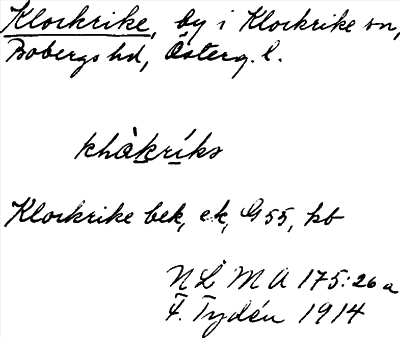 Klockrike, by i Klockrike sn,
Bobergs hd, Österg. l.
khàkríks
Klockrike bek, ek, G 55, kb
N L M A 175:26a
F. Tydén 1914